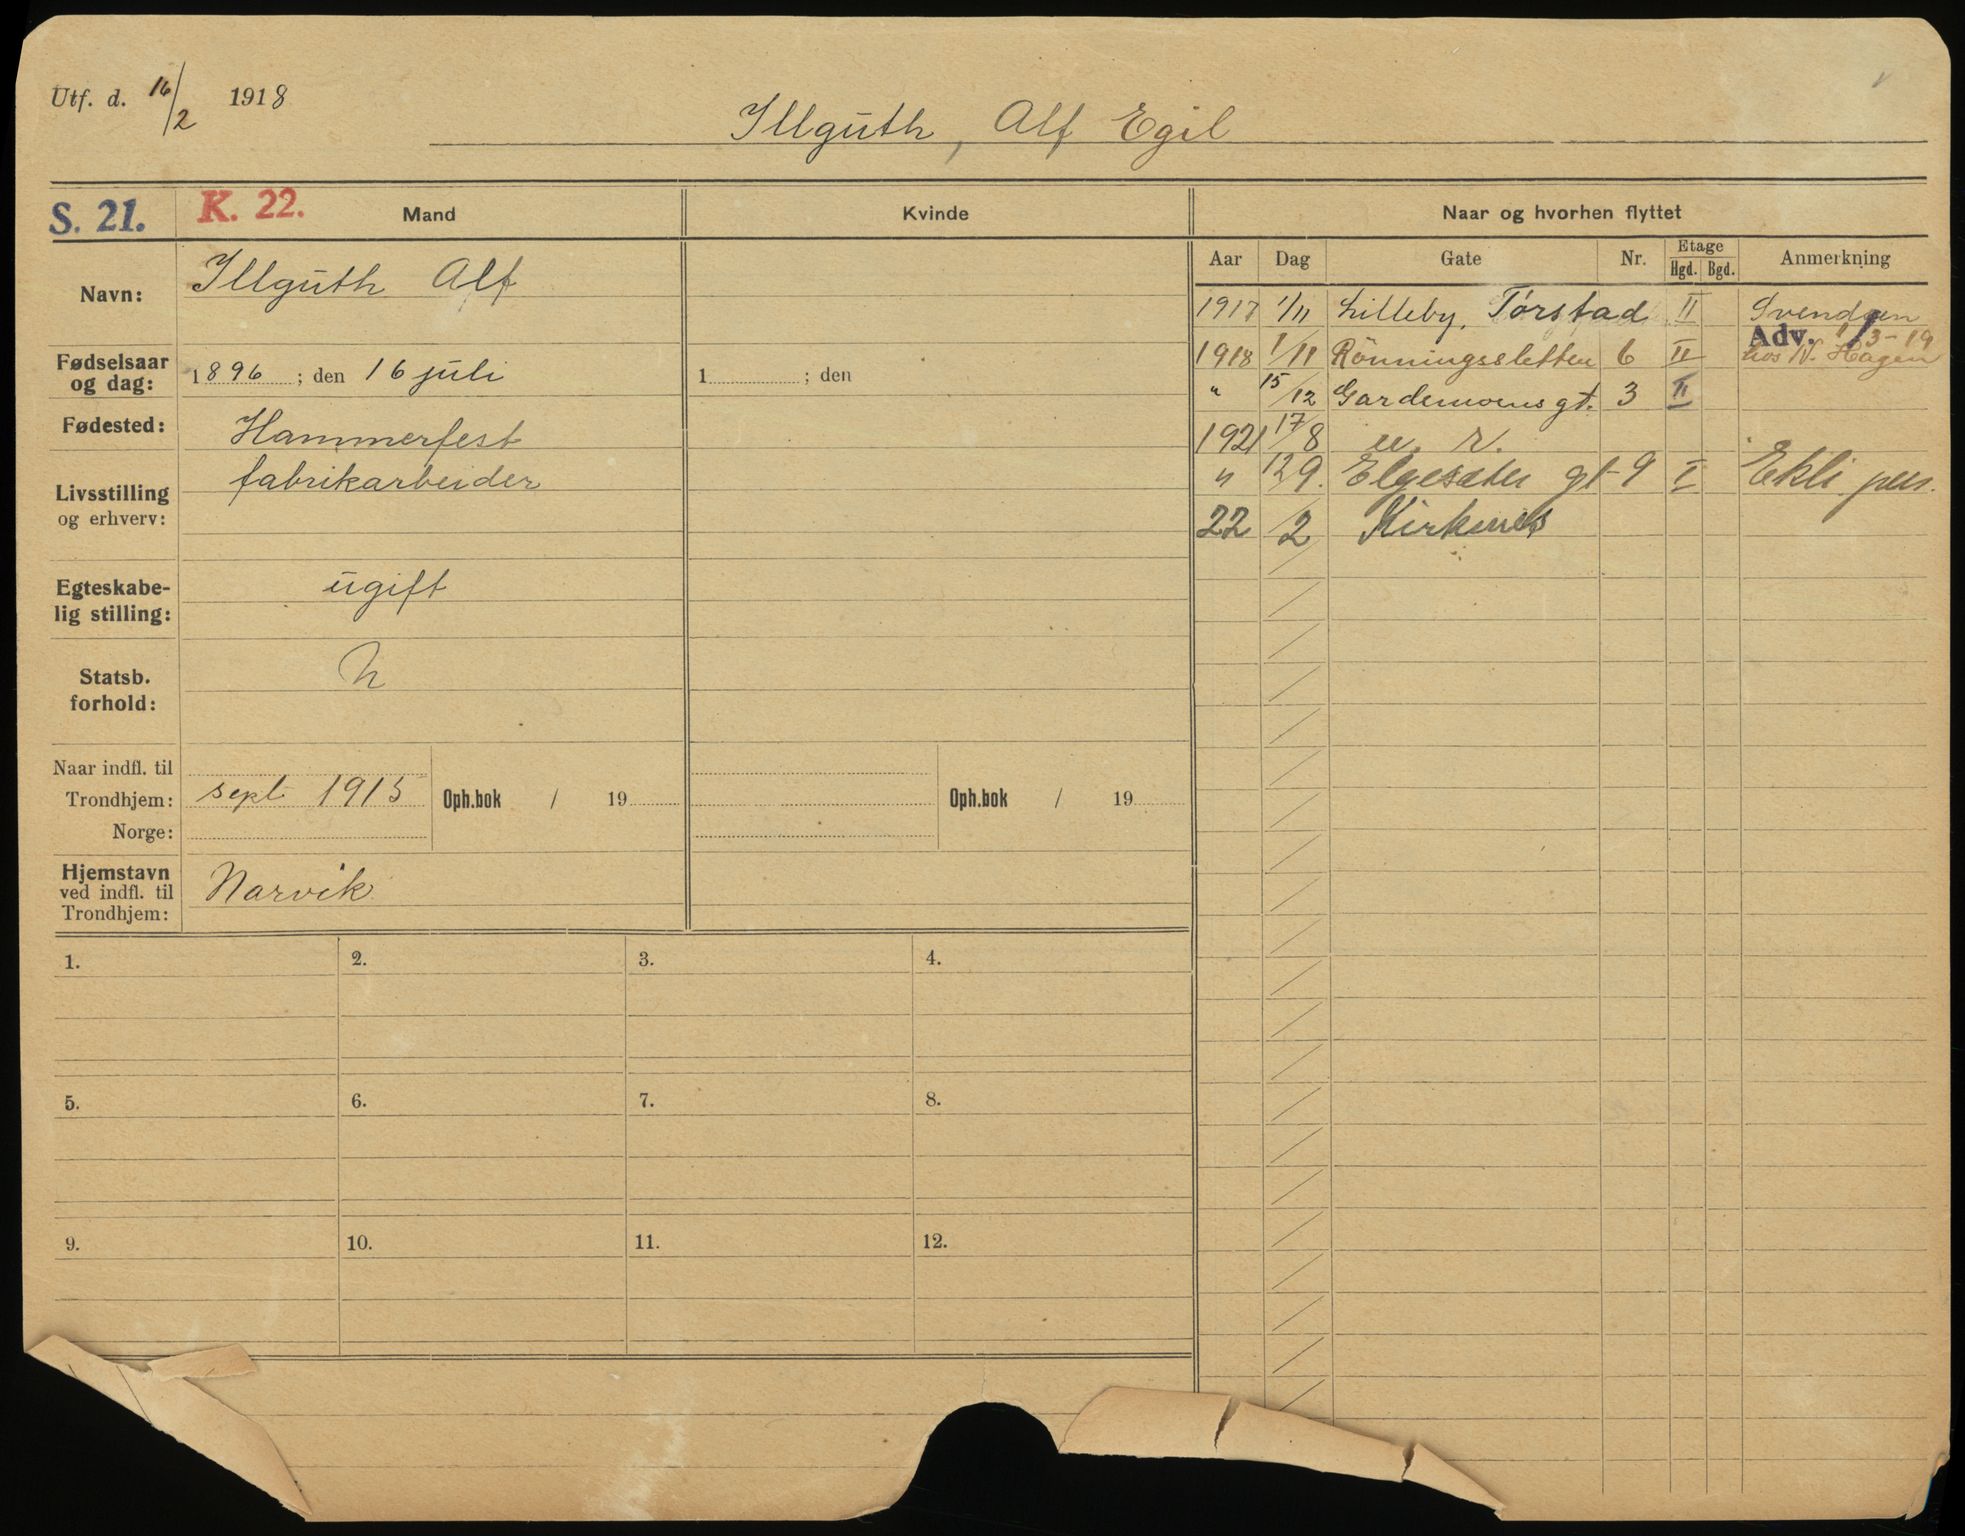 Utf. d. 16/2 1918
Illguth, Alf Egil
S. 21. K. 22. Mand Kvinde Naar og hvorhen flyttet
Aar Dag Gate Nr. Etage Hgd. Bgd. Anmerkning
Navn: Illguth Alf
Fødselsaar og dag: 1896 ; den 16 juli 1 ; den
Fødested: Hammerfest
Livsstilling og erhverv: fabrikarbeider
Egteskabelig stilling: ugift
Statsb. forhold: N
Naar indfl. til
Trondhjem: sept 1915 Oph.bok / 19 Oph.bok / 19
Norge:
Hjemstavn ved indfl. til Trondhjem: Narvik
1917 1/11 Lilleby, Torstad II Svendsen
Adv. 1/3-19
1918 1/11 Rönningssletten 6 II hos N. Hagen
" 15/12 Gardemoens gt. 3 II
1921 17/8 u. r.
" 12/9. Elgesæter gt 9 I Ekli pen.
22 /2 Kirkenes
1. 2. 3. 4.
5. 6. 7. 8.
9. 10. 11. 12.